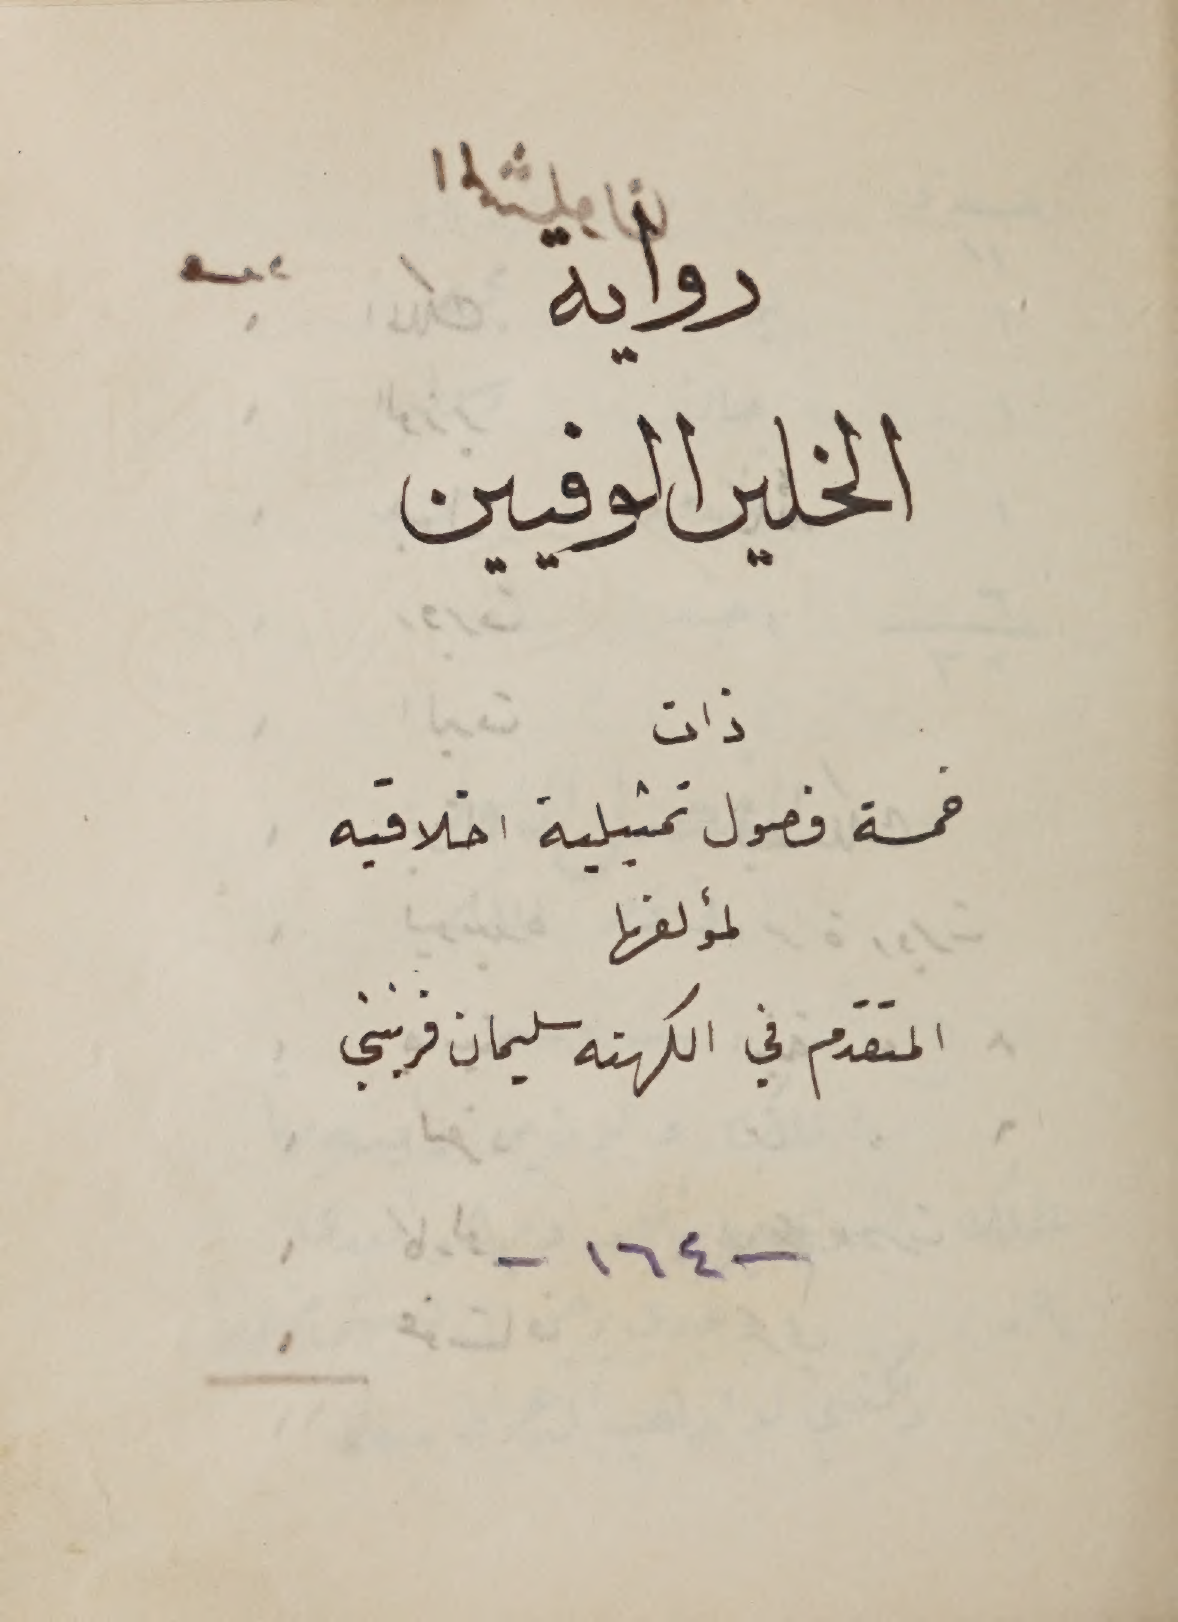 رواية
الخلين الوفيين
ذات
خمسة فصول تمثيلية اخلاقيه
لمؤلفها
المتقدم في الكهنه سليمان فرنيني
- ١٦٤ -